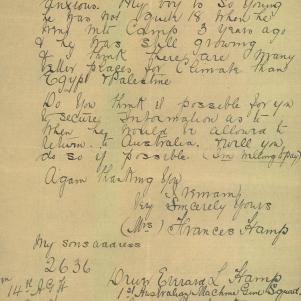 Anxious. My boy is so young
he was not quite 18 when he
went into Camp 3 years ago
& he was still growing
& I think there are many
better places for Climate than
Egypt & Palestine
Do you think it possible for you
to secure information as to
when he would be allowed to
return to Australia. Will you
do so if possible. (I'm willing to pay)
Again thanking you
I remain
Very Sincerely Yours
(Mrs) Frances Kamp
My sons address
2636
Driver Errard L. Kamp
14th A.G.H
1st Australian Machine Gun Squad.